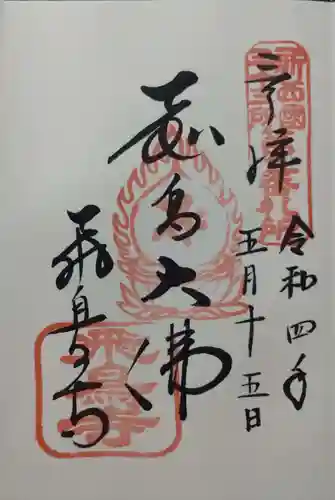 奉拝
令和四年
五月十五日
飛鳥大佛
飛鳥寺
新西國
飛鳥寺